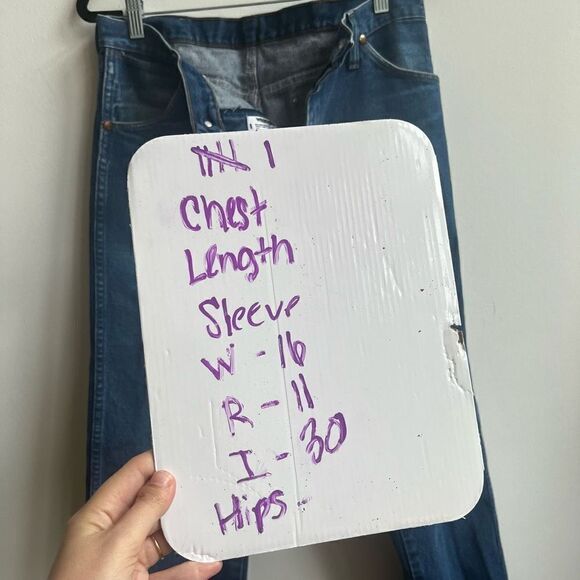 1
Chest
Length
Sleeve
W - 16
R - 11
I - 30
Hips -